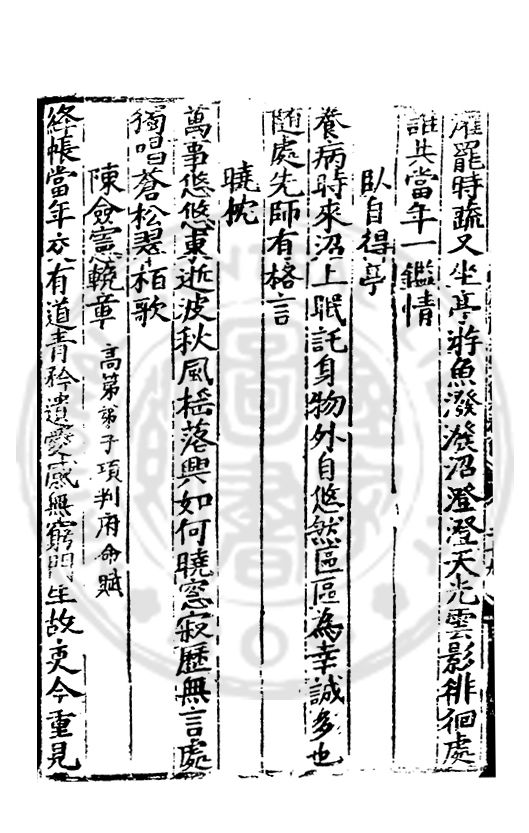 罷時蔬又坐亭游魚潑潑沼澄澄天光雲影徘徊處
誰共當年一鑑情
臥自得亭
養病時來沼上眠託身物外自悠然區區為幸誠多也
隨處先師有格言
曉枕
萬事悠悠東逝波秋風搖落興如何曉窓寂歷無言處
獨唱蒼松翠栢歌
陳僉憲輓章 高第弟子項判府命賦
終帳當年亦有道青矜遺愛感無窮門生故吏今重見